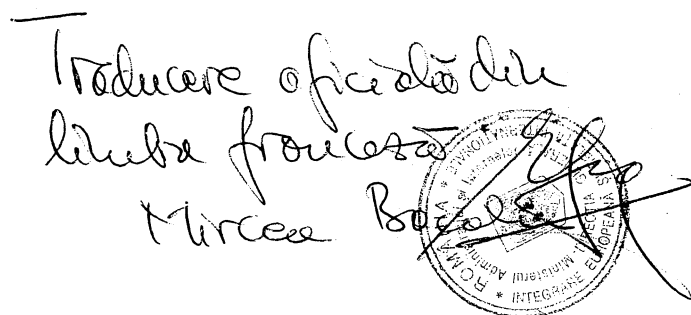 Traducere oficială din
limba franceză
Mircea
ROMÂNIA * Ministerul Administrației și Internelor * DIRECȚIA
INTEGRARE EUROPEANĂ